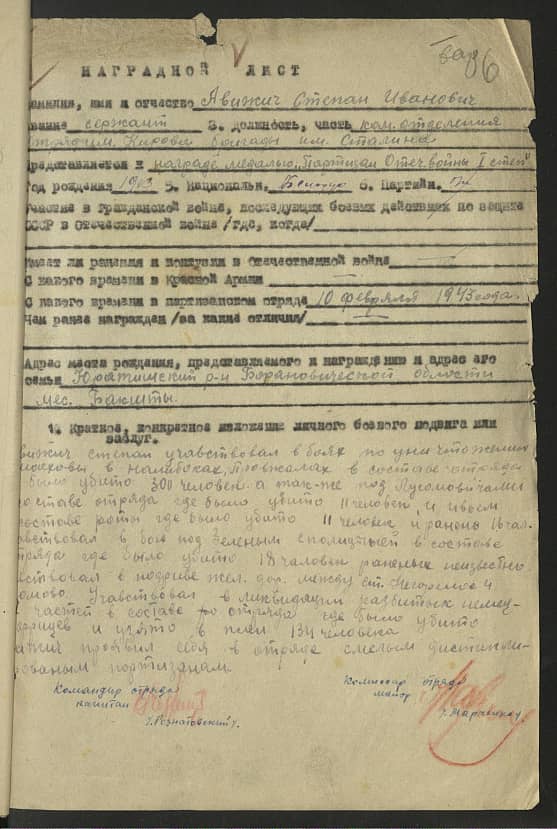 86
НАГРАДНОЙ ЛИСТ
амилия, имя и отчество Авижич Степан Иванович
вание сержант 3. Должность, часть ком. отделения
отряд им. Кирова бригады им. Сталина
редставляется к награде медалью „Партизан Отеч. войны I степ"
од рождения 1913 5. Национальн. 6. Партийн. б/п
частие в гражданской войне, последующих боевых действиях по защите
СССР в Отечественной войне /где, когда/
меет ли ранения и контузии в Отечественной войне
С какого времени в Красной Армии
С какого времени в партизанском отряде 10 февраля 1943 года.
Чем ранее награжден /за какие отличия/
Адрес места рождения, представляемого к награждению и адрес его
семьи Юратишский р-н Барановической области
мес. Бакшты.
1. Краткое, конкретное изложение личного боевого подвига или
заслуг.
вижич степан учавствовал в боях по уничтожению
в Налибоках, в составе отряда
было убито 300 человек а так-же под
составе отряда где было убито 11 человек, и
составе роты где было убито 11 человек и ранено 16 чел.
вствовал в бою под Зеленым с полицией в составе
ряда где было убито 18 человек раненых неизвестно
вствовал в подриве жел. дор. между ст. Негорелое и
Учавствовал в ликвидации разбитых немец-
частей в составе отряда где было убито
и узято в плен 134 человека
жич проявил себя в отряде смелым дистипли-
рованым портизаном.
Командир отряда
капитан
Комиссар отряда
майор